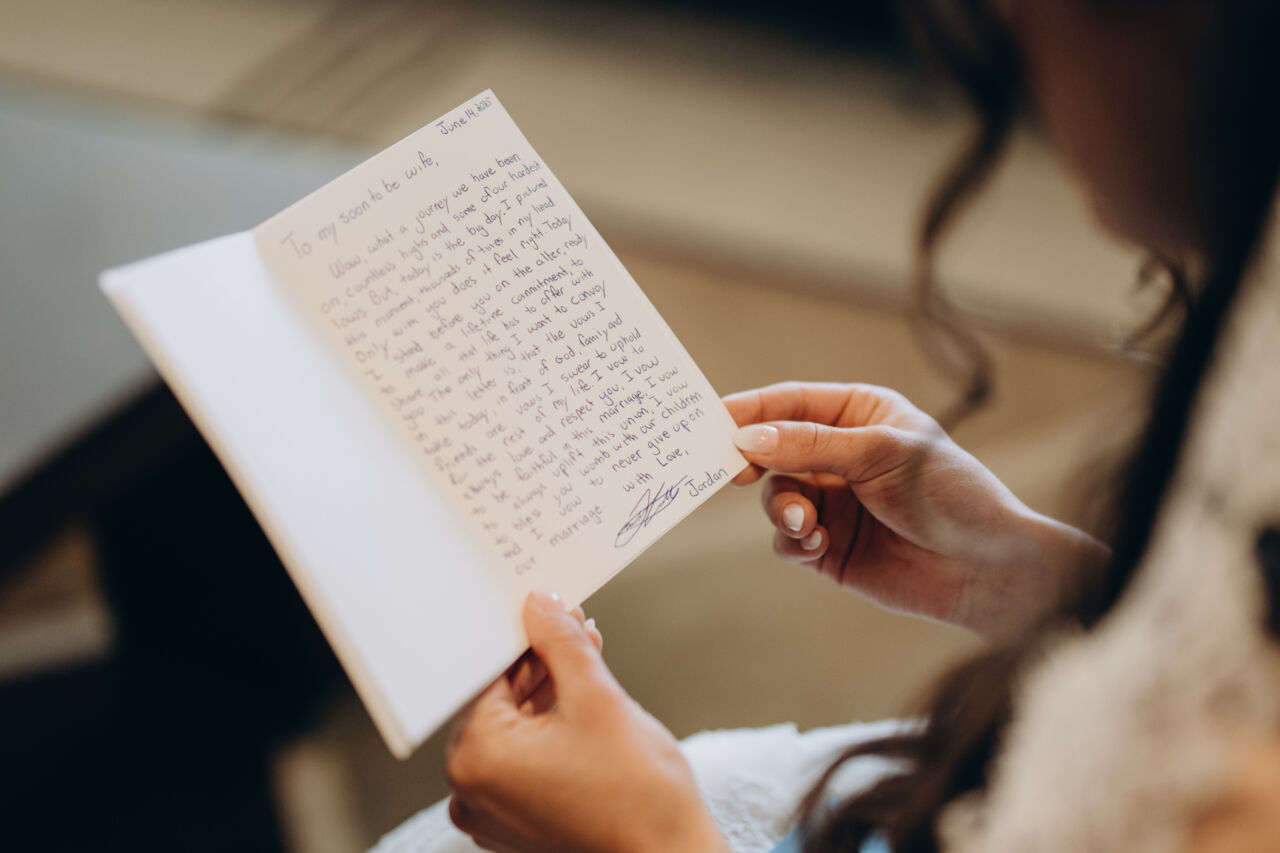 June 14, 2025
To my soon to be wife,
Wow what a journey we have been
on, countless highs and some of our hardest
lows. But, today is the big day. I pictured
this moment, thousands of times in my head
Only with you does it feel right. Today
I stand before you on the alter, ready
to make a lifetime commitment, to
share all that life has to offer with
you. The only thing I want to convay
in this letter is, that the vows I
take today, in front of God, family and
friends are vows I swear to uphold
for the rest of my life. I vow to
always love and respect you, I vow
to be faithful in this marriage, I vow
to always uplift this union, I vow
to bless you womb with our children
and I vow to never give up on
our marriage.
with Love,
Jordan